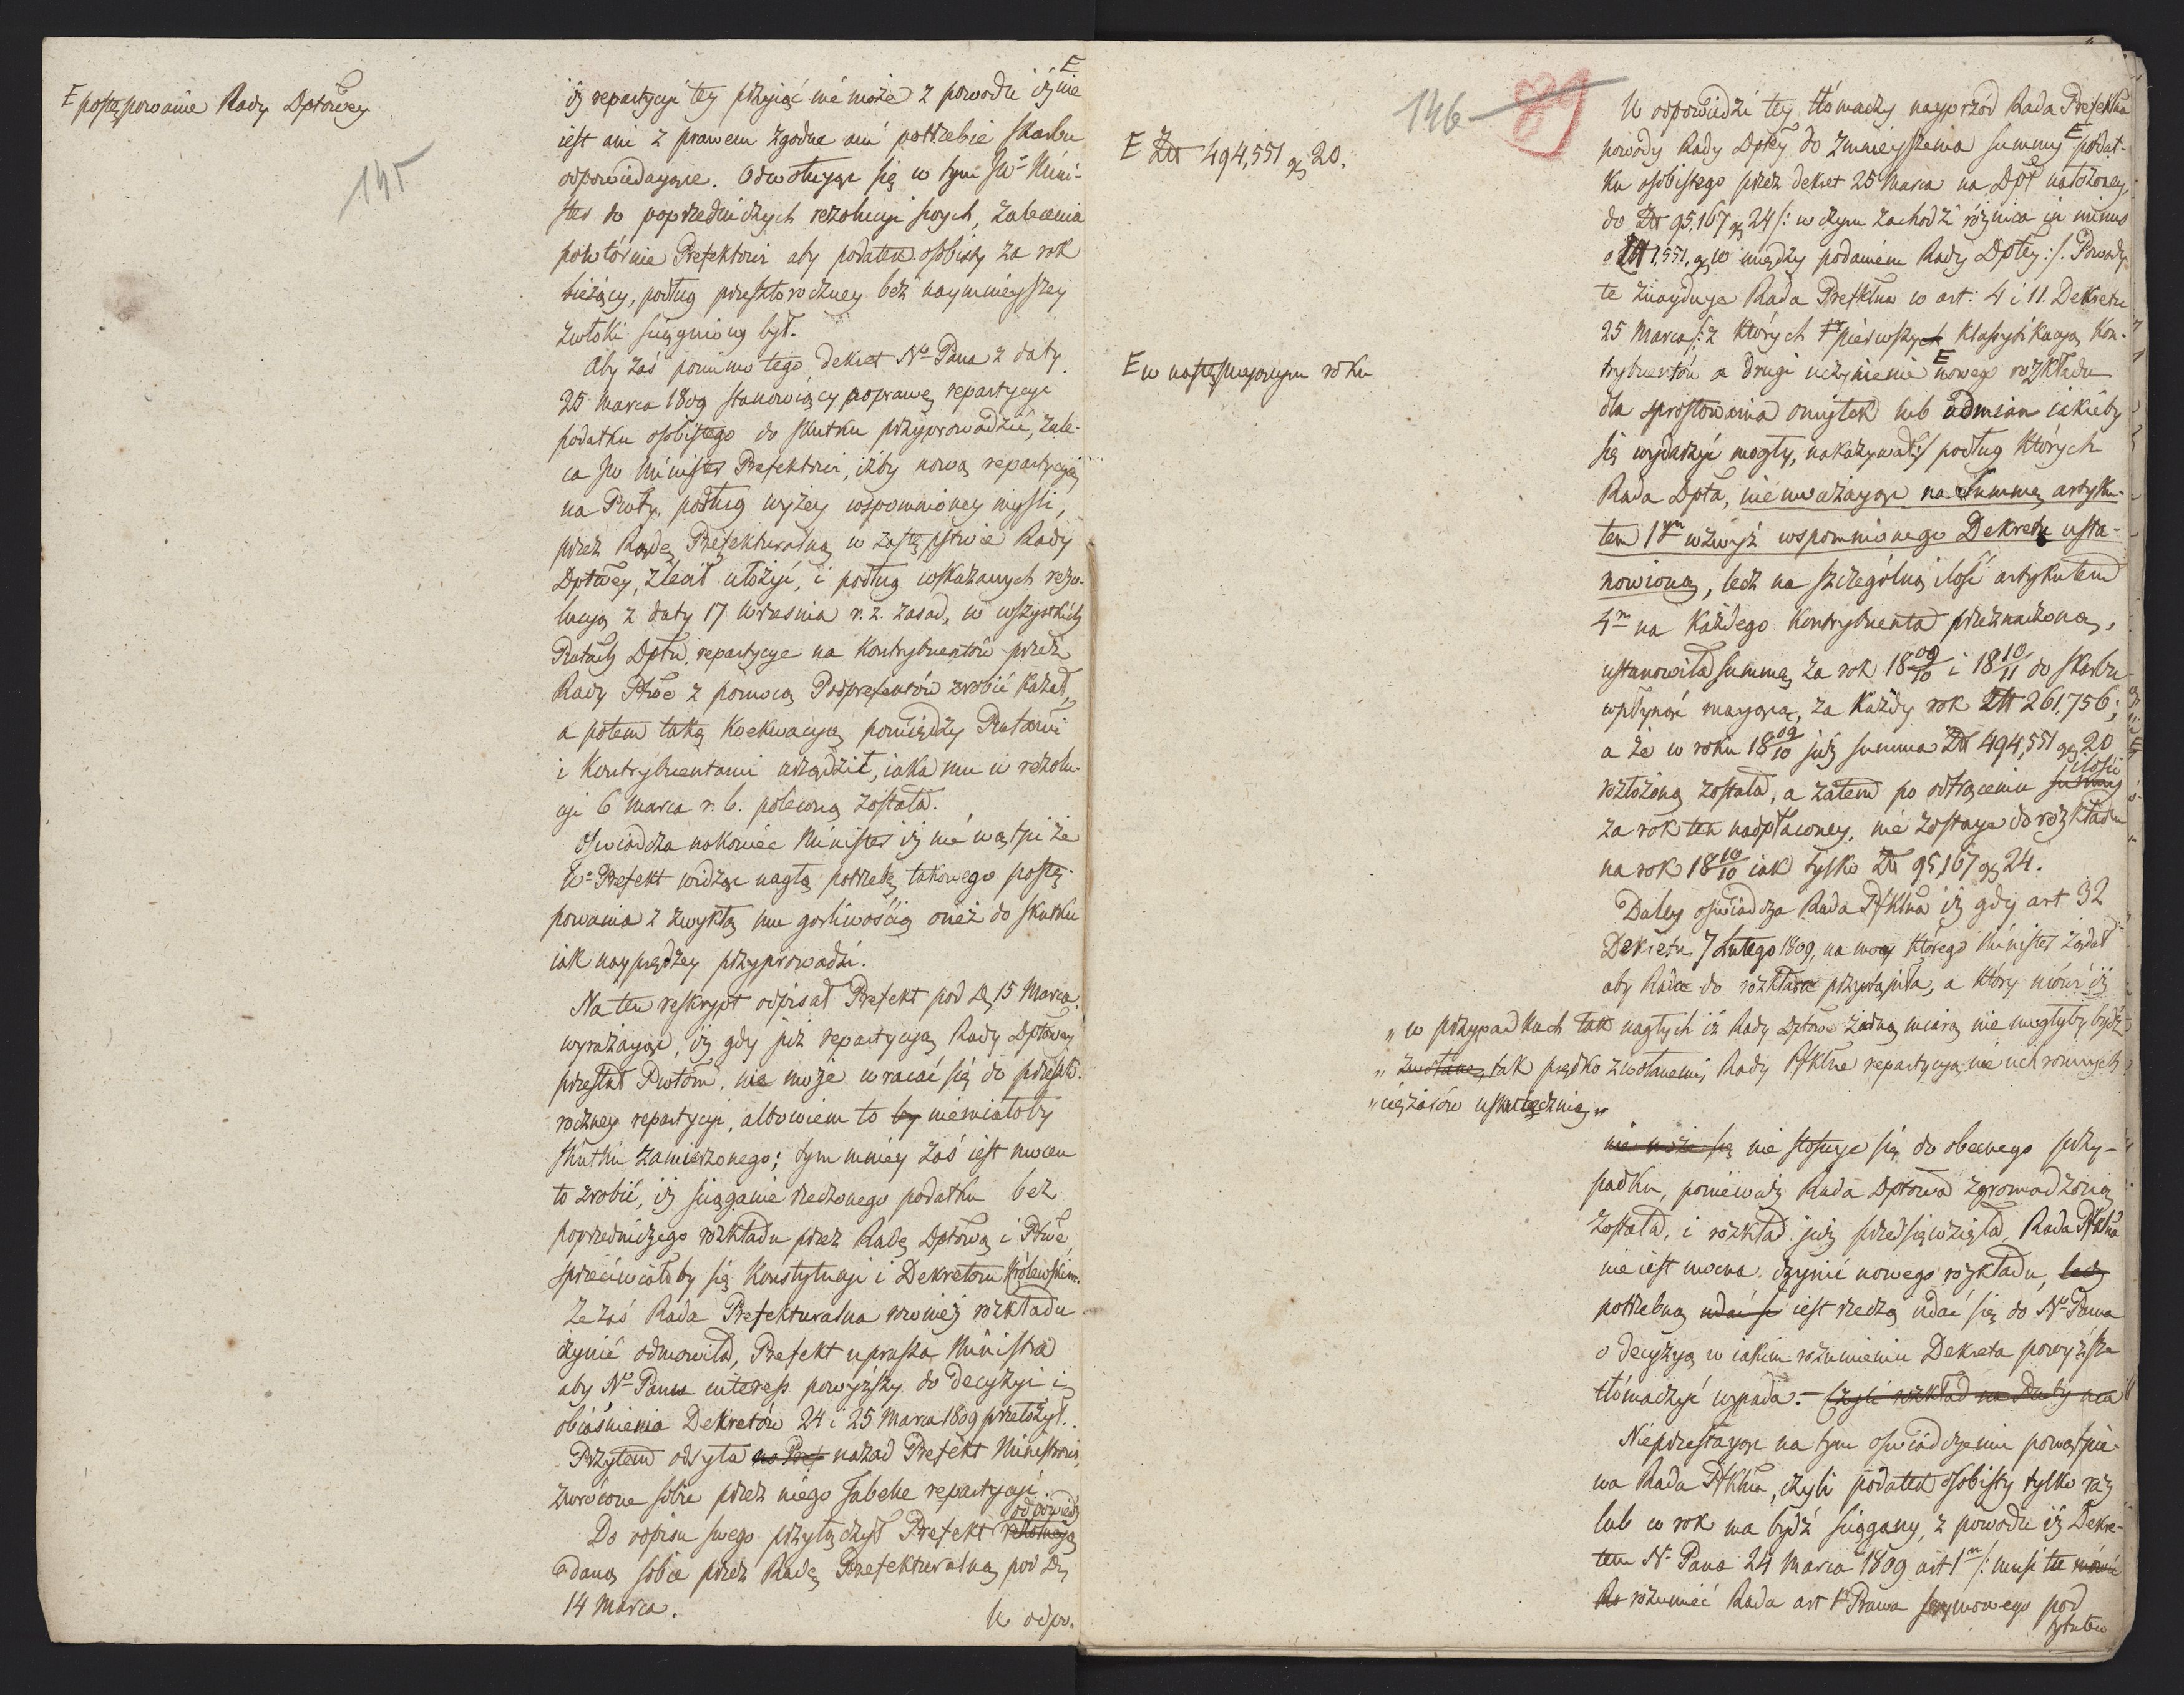 E postępowanie Rady Dptowey
145
iż repartycyi tey przyiąć nie może z powodu iż E nie
iest ani z prawem zgodne ani potrzebie skarbu
odpowiedaiące. Odwołuiąc się w tym JW. Mini-
ster do poprzedniczych rezolucyi swych, zalecenia
powtórnie Prefektowi aby podatek osobisty za rok
bieżący, podług przeszłoroczney bez naymnieyszey
zwłoki sciągniony był.
Aby zaś pomimo tego dekret Nº Pana z daty
25 Marca 1809 stanowiący poprawę repartycyi
podatku osobistego do skutku przyprowadzić, zale-
ca JW Minister Prefektowi, iżby nową repartycyą
na Pwty, podług wyżey wspomnioney myśli,
przez Radę Prefekturalną w zastępstwie Rady
Dptwey, zlecił ułożyć, i podług wskazanych rezo-
lucyą z daty 17 Września r. z. zasad, w wszystkich
Pwtach Dptu, repartycye na kontrybuentów przez
Rady Ptwe z pomocą Podprefektów zrobić kazał,
a potem taką koekwacyą pomiędzy Pwtami
i Kontrybuentami urządził, iaka mu w rezolu-
cyi 6 Marca r. b. poleconą została.
Oświadcza nakoniec Minister iż nie wątpi że
Wº Prefekt widząc nagłą potrzebę takowego postę-
powania z zwykłą mu gorliwością oneż do skutku
iak nayprędzey przyprowadzi.
Na ten reskrypt odpisał Prefekt pod D. 15 Marca
wyrażaiąc, iż gdy już repartycyą Rady Dptowey
przesłał Pwtóm, nie może wracać się do przeszło-
roczney repartycyi, albowiem to by niemiałoby
skutku zamierzonego; tym mniey zaś iest mocen
to zrobić, iż sciąganie rzeczonego podatku bez
poprzedniczego rozkładu przez Radę Dptową i Ptwe
sprzeciwiałoby się Konstytucyi i Dekretom Królewskim.
Że zaś Rada Prefekturalna również rozkładu
czynić odmowiła, Prefekt uprasza Ministra
aby Nº Panu interess powyższy do decyzyi i
obiaśnienia Dekretów 24 i 25 Marca 1809 przełożył.
Przytem odsyła na Pref nazad Prefekt Ministrowi,
zwrócone sobie przez niego Tabelle repartycyi.
Do odpisu swego przyłączył Prefekt rezolucyą odpowiedź
daną sobie przez Radę Prefekturalną pod D.
14 Marca.
W odpo.
146 89
E Złł 494,551 gr 20.
E w następuiącym roku
W odpowiedzi tey tłómaczy nayprzod Rada Prefektna
powody Rady Dptey do zmnieyszenia summy E podat-
ku osobistego przez dekret 25 Marca na Dpt nałożoney,
do Złł 95,167 gr 24 /: w czym zachodzi różnica in minus
o Złł 1,551, gr 10 między podaniem Rady Dptey :/. Powody
te znayduie Rada Prefktna w art: 4 i 11. Dekretu
25 Marca /: z których pierwszych klassyfikacyą kon-
trybuentów a drugi uczynienie E nowego rozkładu
dla sprostowania omyłek lub odmian iakieby
się wydarzyć mogły, nakazywał :/ podług których
Rada Dpta, nieuważaiąc na summę artyku-
łem 1ym wzwyż wspomnionego Dekretu usta-
nowioną, lecz na szczególną ilość artykułem
4m na każdego kontrybuenta przeznaczoną,
ustanowiła summę za rok 18 09/10 i 18 10/11 do skarbu
wpłynąć maiącą, za każdy rok Złł 261,756;
a że w roku 18 09/10 już summa Złł 494,551 gr 20
rozłożoną została, a zatem po odtrąceniu summy ilości
za rok ten nadpłaconey, nie zostaie do rozkładu
na rok 18 10/10 iak tylko Złł 95,167 gr 24.
Daley oświadcza Rada Pfktna iż gdy art 32
Dekretu 7 Lutego 1809, na mocy którego Minister żądał
aby Rada do rozkładu przystąpiła, a który mówi iż
„ w przypadkach tak nagłych iż Rady Dptowe żadną miarą nie mogłyby bydź
„ zwołane, tak prędko zwołanemi, Rady Pfktne repartycyą nieuchronnych
„ ciężarów uskutecznią „
nie może się nie stosuie się do obecnego przy-
padku, ponieważ Rada Dptowa zgromadzoną
została, i rozkład już przedsięwzięła, Rada Pfktna
nie iest mocna czynić nowego rozkładu, lecz
potrzebną udać się iest rzeczą udać się do Nº Pana
o decyzyą w iakim rozumieniu Dekreta powyższe
tłómaczyć wypada. – Czyli rozkład na
Nieprzestaiąc na tym oświadczeniu powątpie-
wa Rada Pfktna, czyli podatek osobisty tylko raz
lub w rok ma bydź sciągany, z powodu iż Dekre-
tem Nº Pana 24 Marca 1809 art 1m /: musi tu mówić
Ra rozumieć Rada art 1 Prawa seymowego pod
tytułem